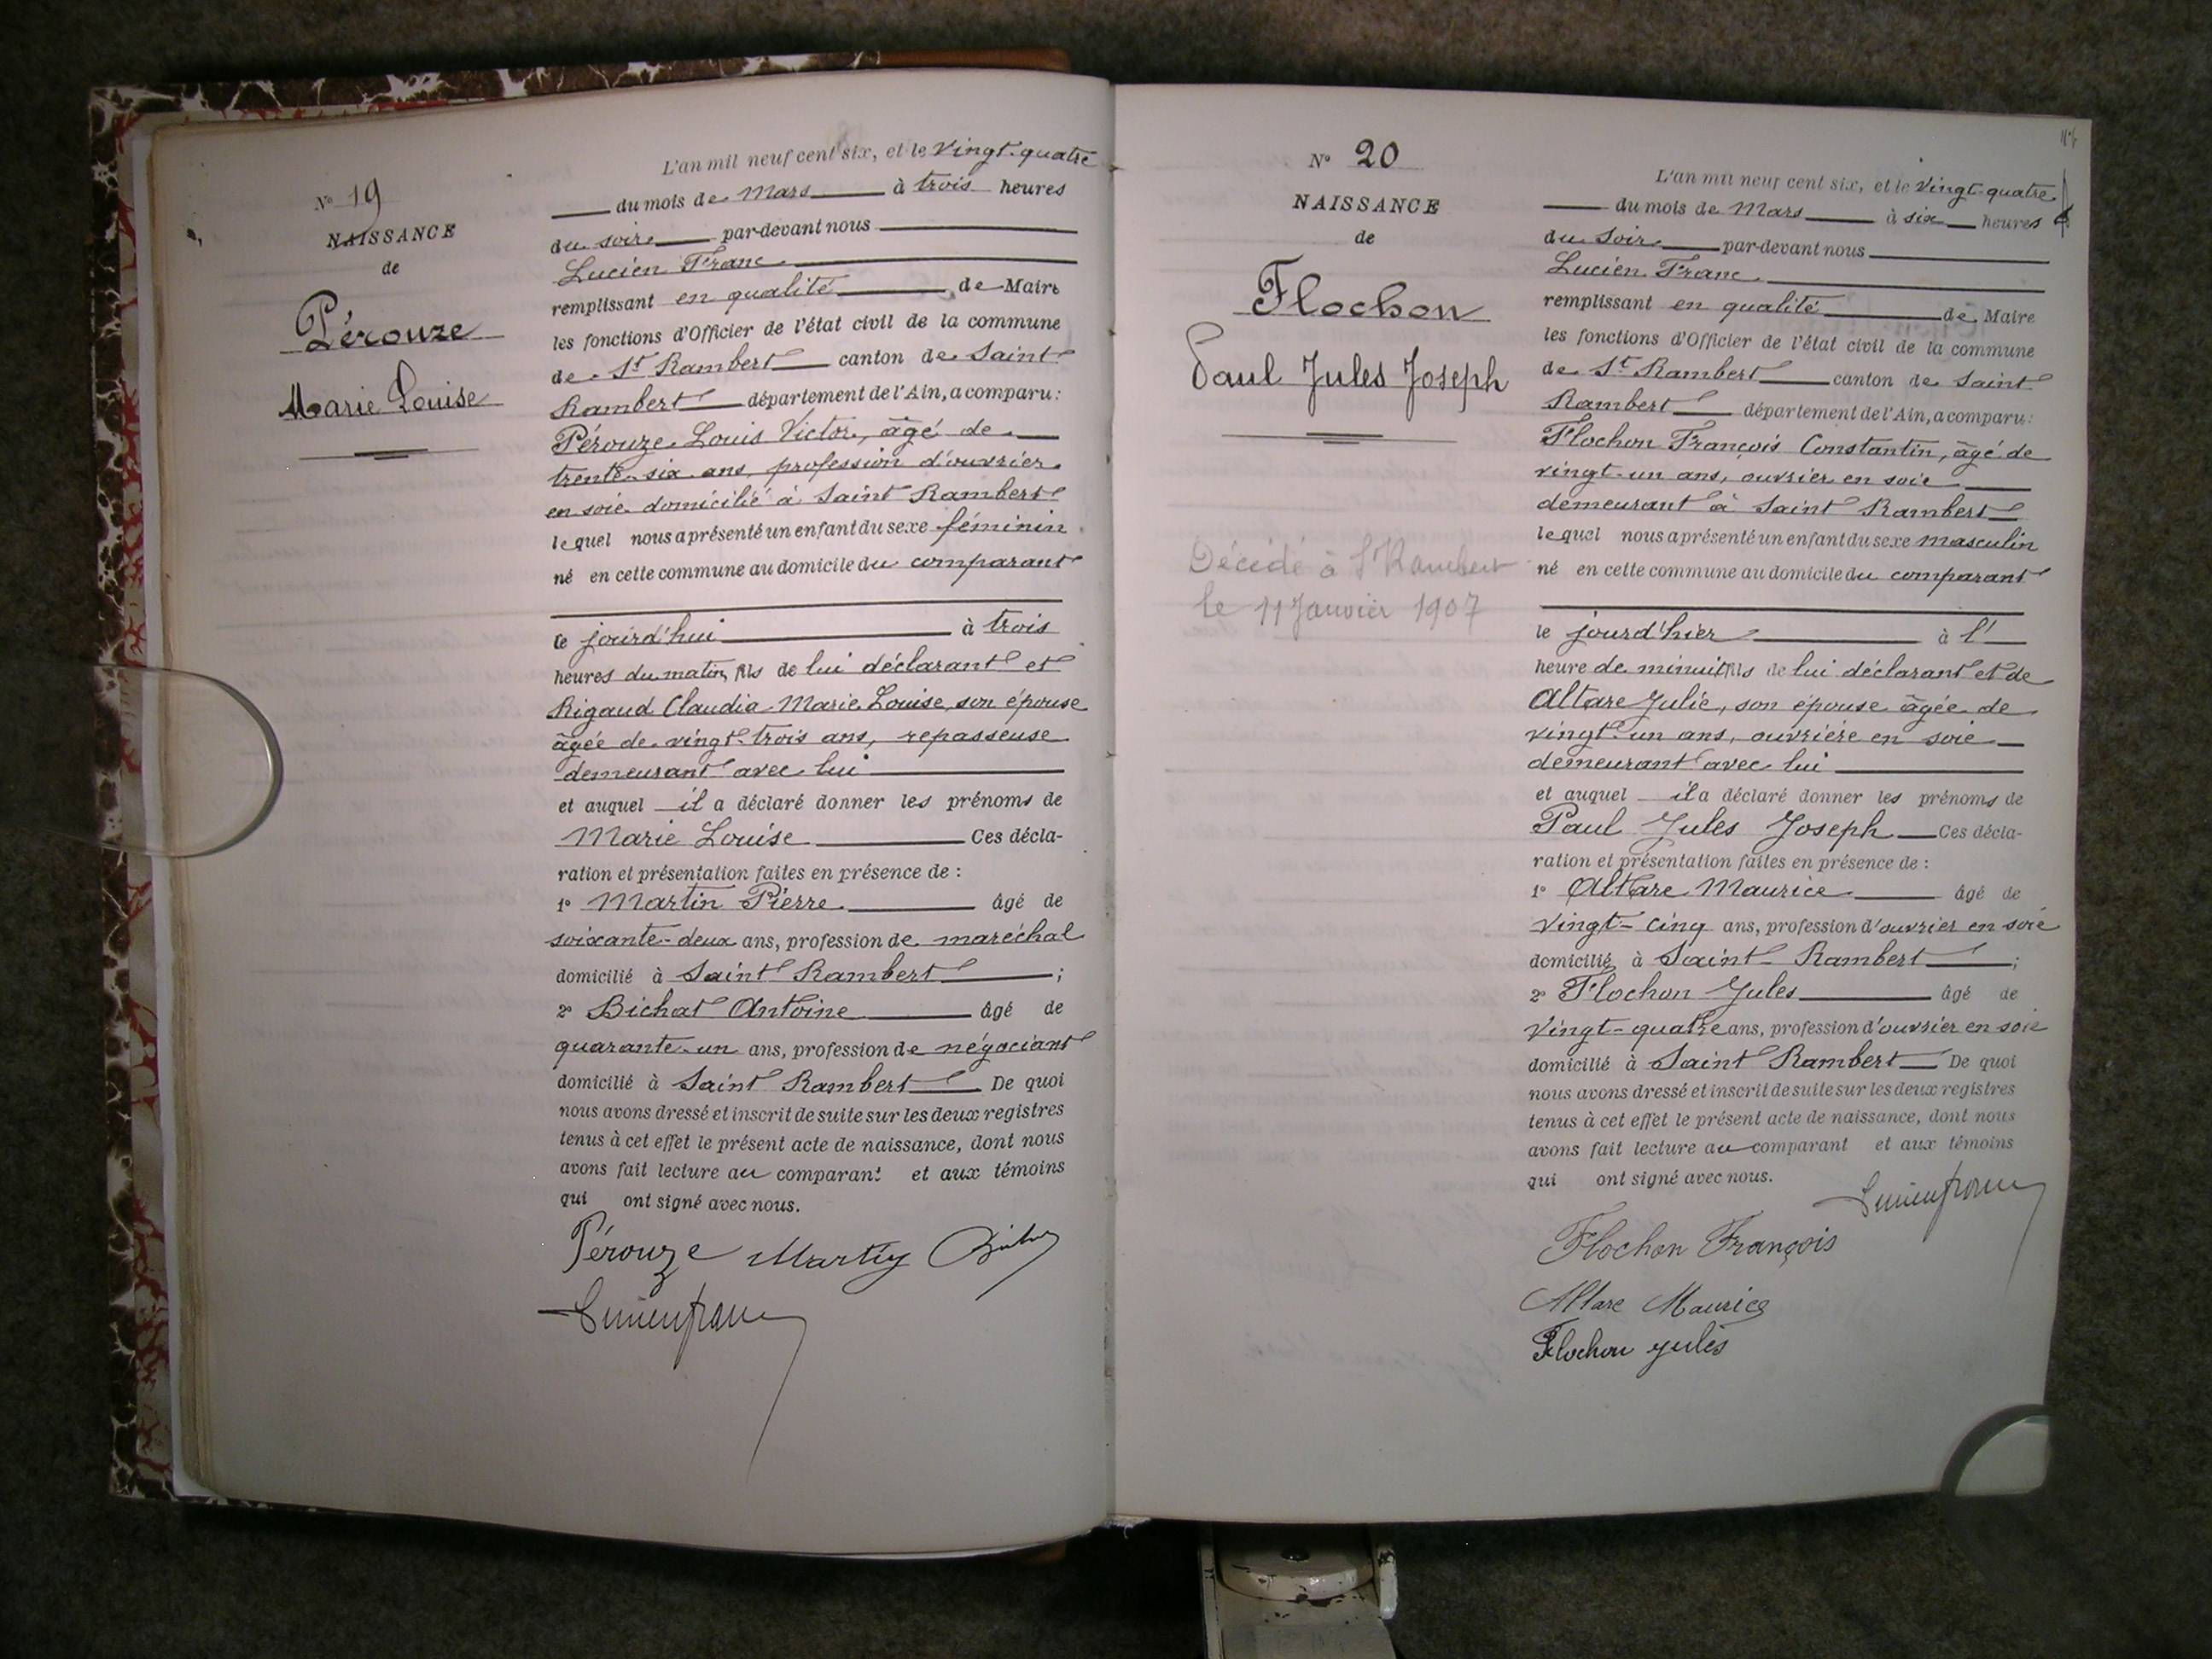 N° 19
NAISSANCE
de
Pérouze
Marie Louise
L'an mil neuf cent six, et le vingt-quatre
du mois de Mars à trois heures
du soir par-devant nous
Lucien Franc
remplissant en qualité de Maire
les fonctions d'Officier de l'état civil de la commune
de St Rambert canton de Saint
Rambert département de l'Ain, a comparu:
Pérouze Louis Victor, âgé de
trente-six ans, profession d'ouvrier
en soie domicilié à Saint Rambert
lequel nous a présenté un enfant du sexe féminin
né en cette commune au domicile du comparant
le jourd'hui à trois
heures du matin, fils de lui déclarant et
Rigaud Claudia Marie Louise, son épouse
âgée de vingt-trois ans, repasseuse
demeurant avec lui
et auquel il a déclaré donner les prénoms de
Marie Louise Ces décla-
ration et présentation faites en présence de :
1° Martin Pierre âgé de
soixante-deux ans, profession de maréchal
domicilié à Saint Rambert ;
2° Bichat Antoine âgé de
quarante-un ans, profession de négociant
domicilié à Saint Rambert De quoi
nous avons dressé et inscrit de suite sur les deux registres
tenus à cet effet le présent acte de naissance, dont nous
avons fait lecture au comparant et aux témoins
qui ont signé avec nous.
Pérouze Martin
Lucien Franc
N° 20
NAISSANCE
de
Flochon
Paul Jules Joseph
Décédé à St Rambert
le 11 Janvier 1907
L'an mil neuf cent six, et le vingt-quatre
du mois de Mars à six heures
du soir par-devant nous
Lucien Franc
remplissant en qualité de Maire
les fonctions d'Officier de l'état civil de la commune
de St Rambert canton de Saint
Rambert département de l'Ain, a comparu:
Flochon François Constantin, âgé de
vingt-un ans, ouvrier en soie
demeurant à Saint Rambert
lequel nous a présenté un enfant du sexe masculin
né en cette commune au domicile du comparant
le jourd'hier à l'
heure de minuit, fils de lui déclarant et de
Altare Julie, son épouse âgée de
vingt-un ans, ouvrière en soie
demeurant avec lui
et auquel il a déclaré donner les prénoms de
Paul Jules Joseph Ces décla-
ration et présentation faites en présence de :
1° Altare Maurice âgé de
vingt-cinq ans, profession d'ouvrier en soie
domicilié à Saint Rambert ;
2° Flochon Jules âgé de
vingt-quatre ans, profession d'ouvrier en soie
domicilié à Saint Rambert De quoi
nous avons dressé et inscrit de suite sur les deux registres
tenus à cet effet le présent acte de naissance, dont nous
avons fait lecture au comparant et aux témoins
qui ont signé avec nous.
Lucien Franc
Flochon François
Altare Maurice
Flochon Jules